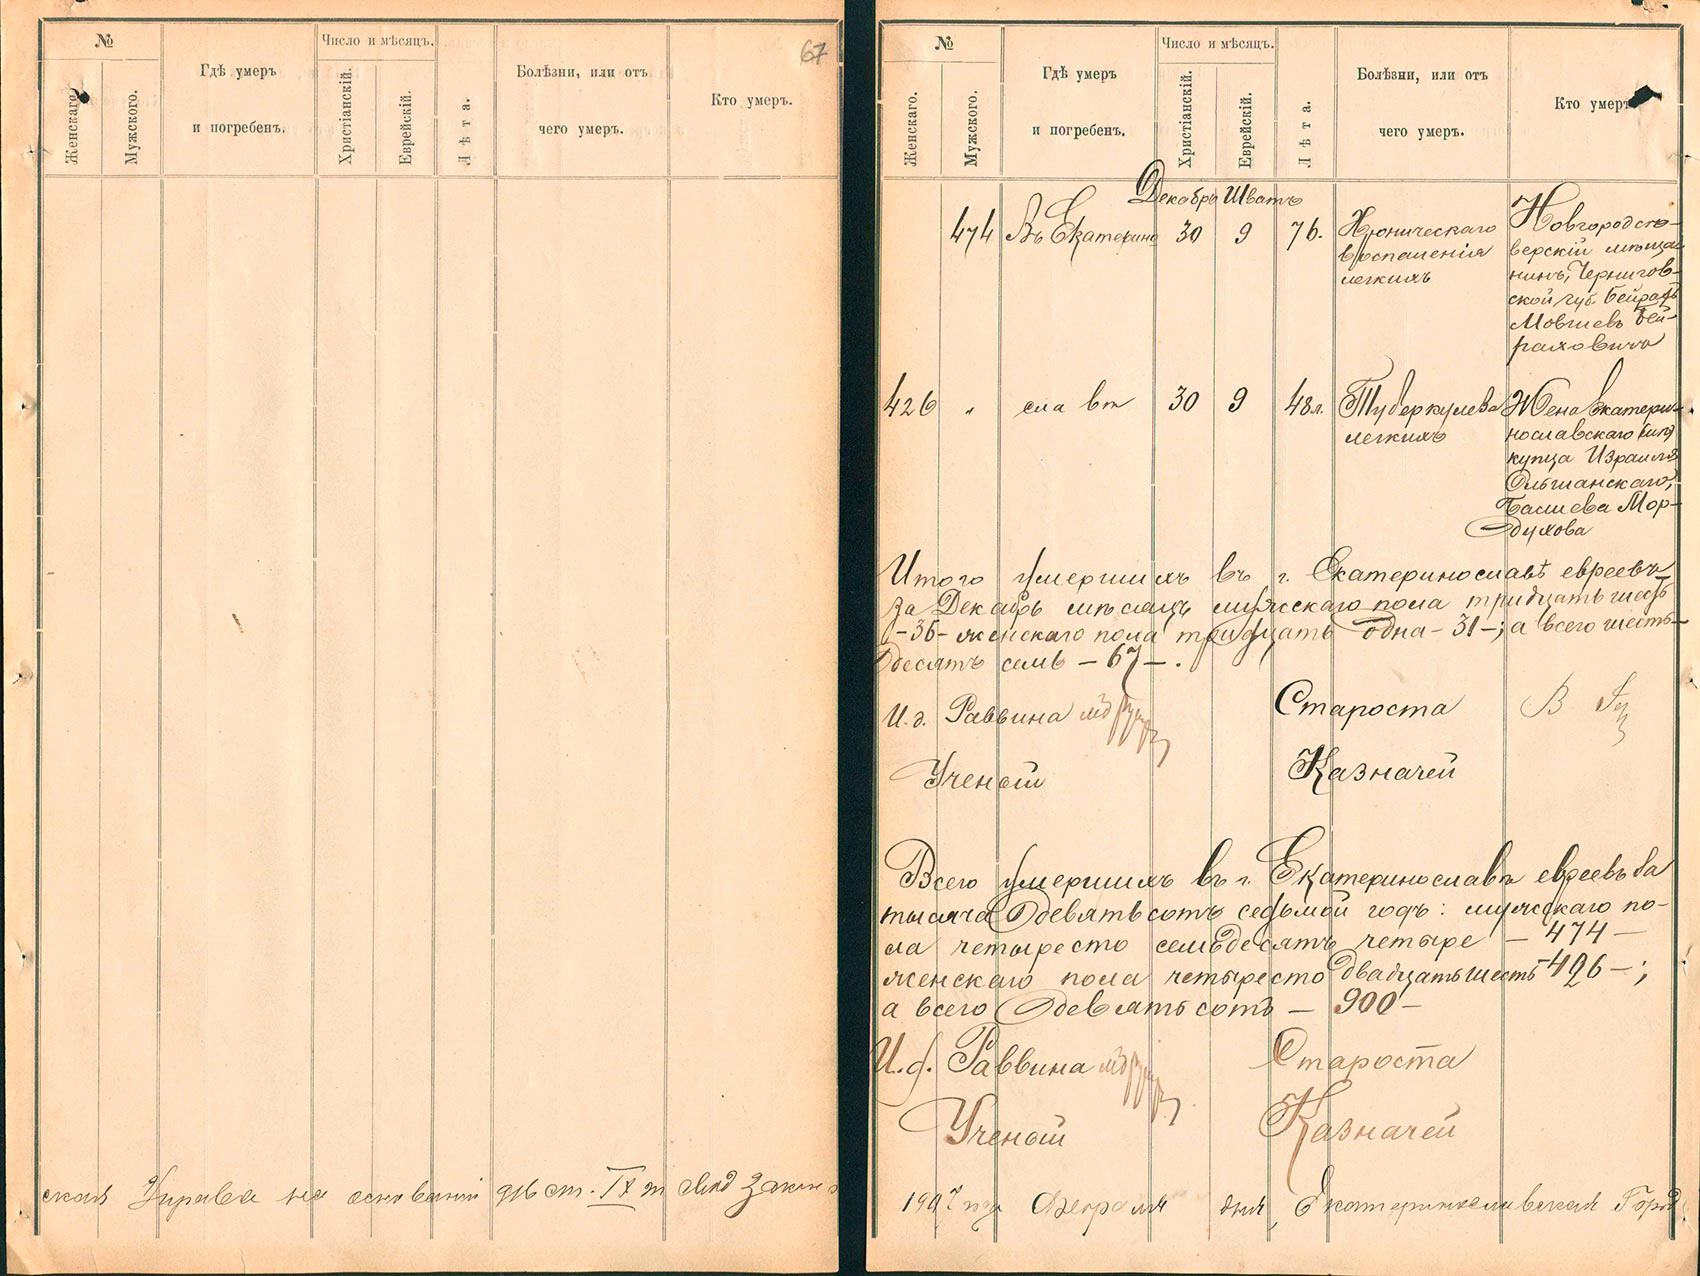 №
Женскаго.
Мужского.
Гдѣ умеръ
и погребенъ.
Число и мѣсяцъ.
Христіанскій.
Еврейскій.
Лѣта.
Болѣзни, или отъ
чего умеръ.
67
Кто умеръ.
скал Управа на основаніи ст. IX т Закон
№
Женскаго.
Мужского.
Гдѣ умеръ
и погребенъ.
Число и мѣсяцъ.
Христіанскій.
Еврейскій.
Лѣта.
Болѣзни, или отъ
чего умеръ.
Кто умеръ
Декабрь Шватъ
474 Въ Екатерино 30 9 76.
Хроническаго
воспаленія
легкихъ
Новгородсѣ-
верскій мѣща-
нинъ, Чернигов-
ской губ. Бейрахъ
Мовшевъ Бей-
раховичъ
426 " славѣ 30 9 48л.
Туберкулеза
легкихъ
Жена Екатери-
нославскаго
купца Израиля
Ольшанскаго,
Башева Мор-
духова
Итого умершихъ въ г. Екатеринославѣ евреевъ
за Декабрь мѣсяцъ мужскаго пола тридцать шесть
-36- женскаго пола тридцать одна - 31 -; а всего шесть-
десятъ семь - 67 - .
И. д. Раввина Староста
Ученый Казначей
Всего умершихъ въ г. Екатеринославѣ евреевъ за
тысяча девятьсотъ седьмой годъ: мужскаго по-
ла четыресто семьдесятъ четыре - 474 -
женскаго пола четыресто двадцать шесть - 426 - ;
а всего девятьсотъ - 900 -
И. д. Раввина Староста
Ученый Казначей
190 Февраля дня, Екатеринославская Город